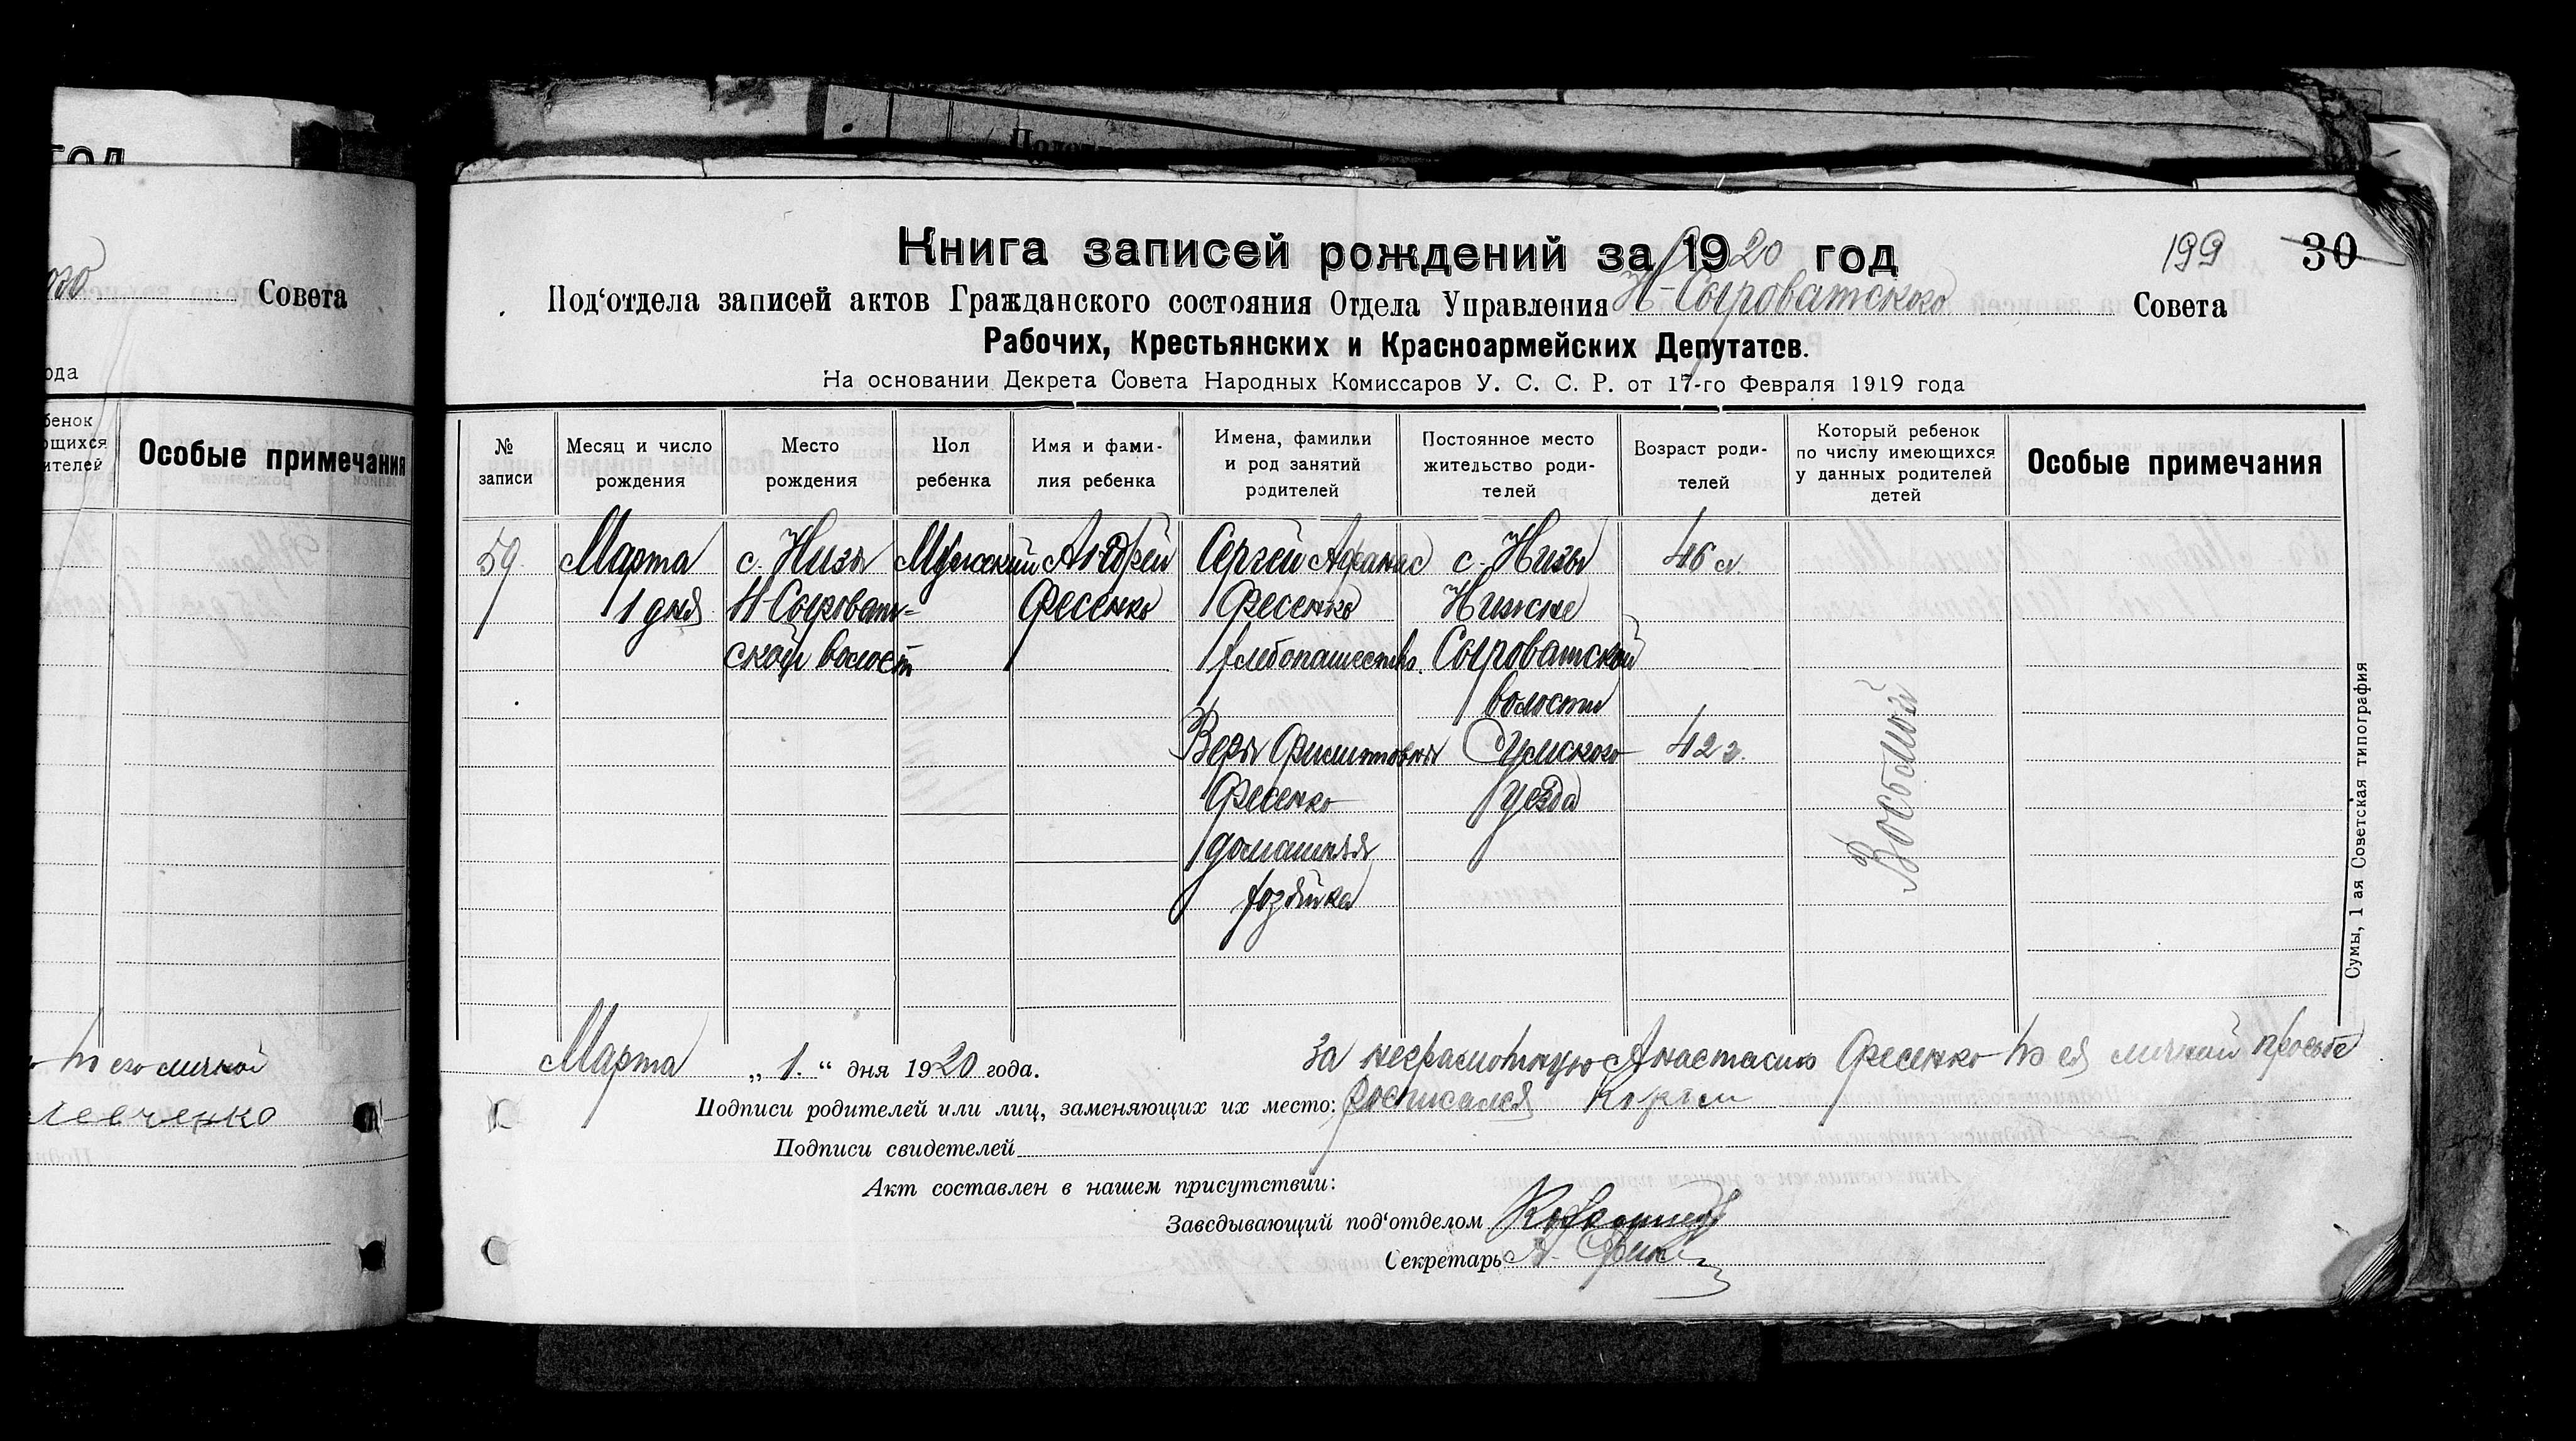 год
Совета
ода
бенок
ющихся
ителей
Особые примечания
по его личной
левченко
Книга записей рождений за 1920 год
199 30
Под‘отдела записей актов Гражданского состояния Отдела Управления Н-Сыроватского Совета
Рабочих, Крестьянских и Красноармейских Депутатов.
На основании Декрета Совета Народных Комиссаров У. С. С. Р. от 17-го Февраля 1919 года
№ записи
Месяц и число рождения
Место рождения
Пол ребенка
Имя и фами-
лия ребенка
Имена, фамилии
и род занятий
родителей
Постоянное место
жительство роди-
телей
Возраст роди-
телей
Который ребенок
по числу имеющихся
у данных родителей
детей
Особые примечания
59.
Марта
1 дня
с. Низы
Н Сыроват-
ской волост
Мужской
Андрей
Фесенко
Сергей Афанас
Фесенко
хлебопашество.
Вера
Фесенко
домашняя
хозяйка
с. Низы
Нижне
Сыроватской
волости
Сумского
уезда
46 л.
42 г.
Восьмой
Сумы, 1 ая Советская типография
Марта „ 1. “ дня 1920 года.
За неграмотную Анастасию Фесенко по ея личной просьбе
Подписи родителей или лиц, заменяющих их место: росписался
Подписи свидетелей
Акт составлен в нашем присутствии:
Заведывающий под‘отделом
Секретарь А.